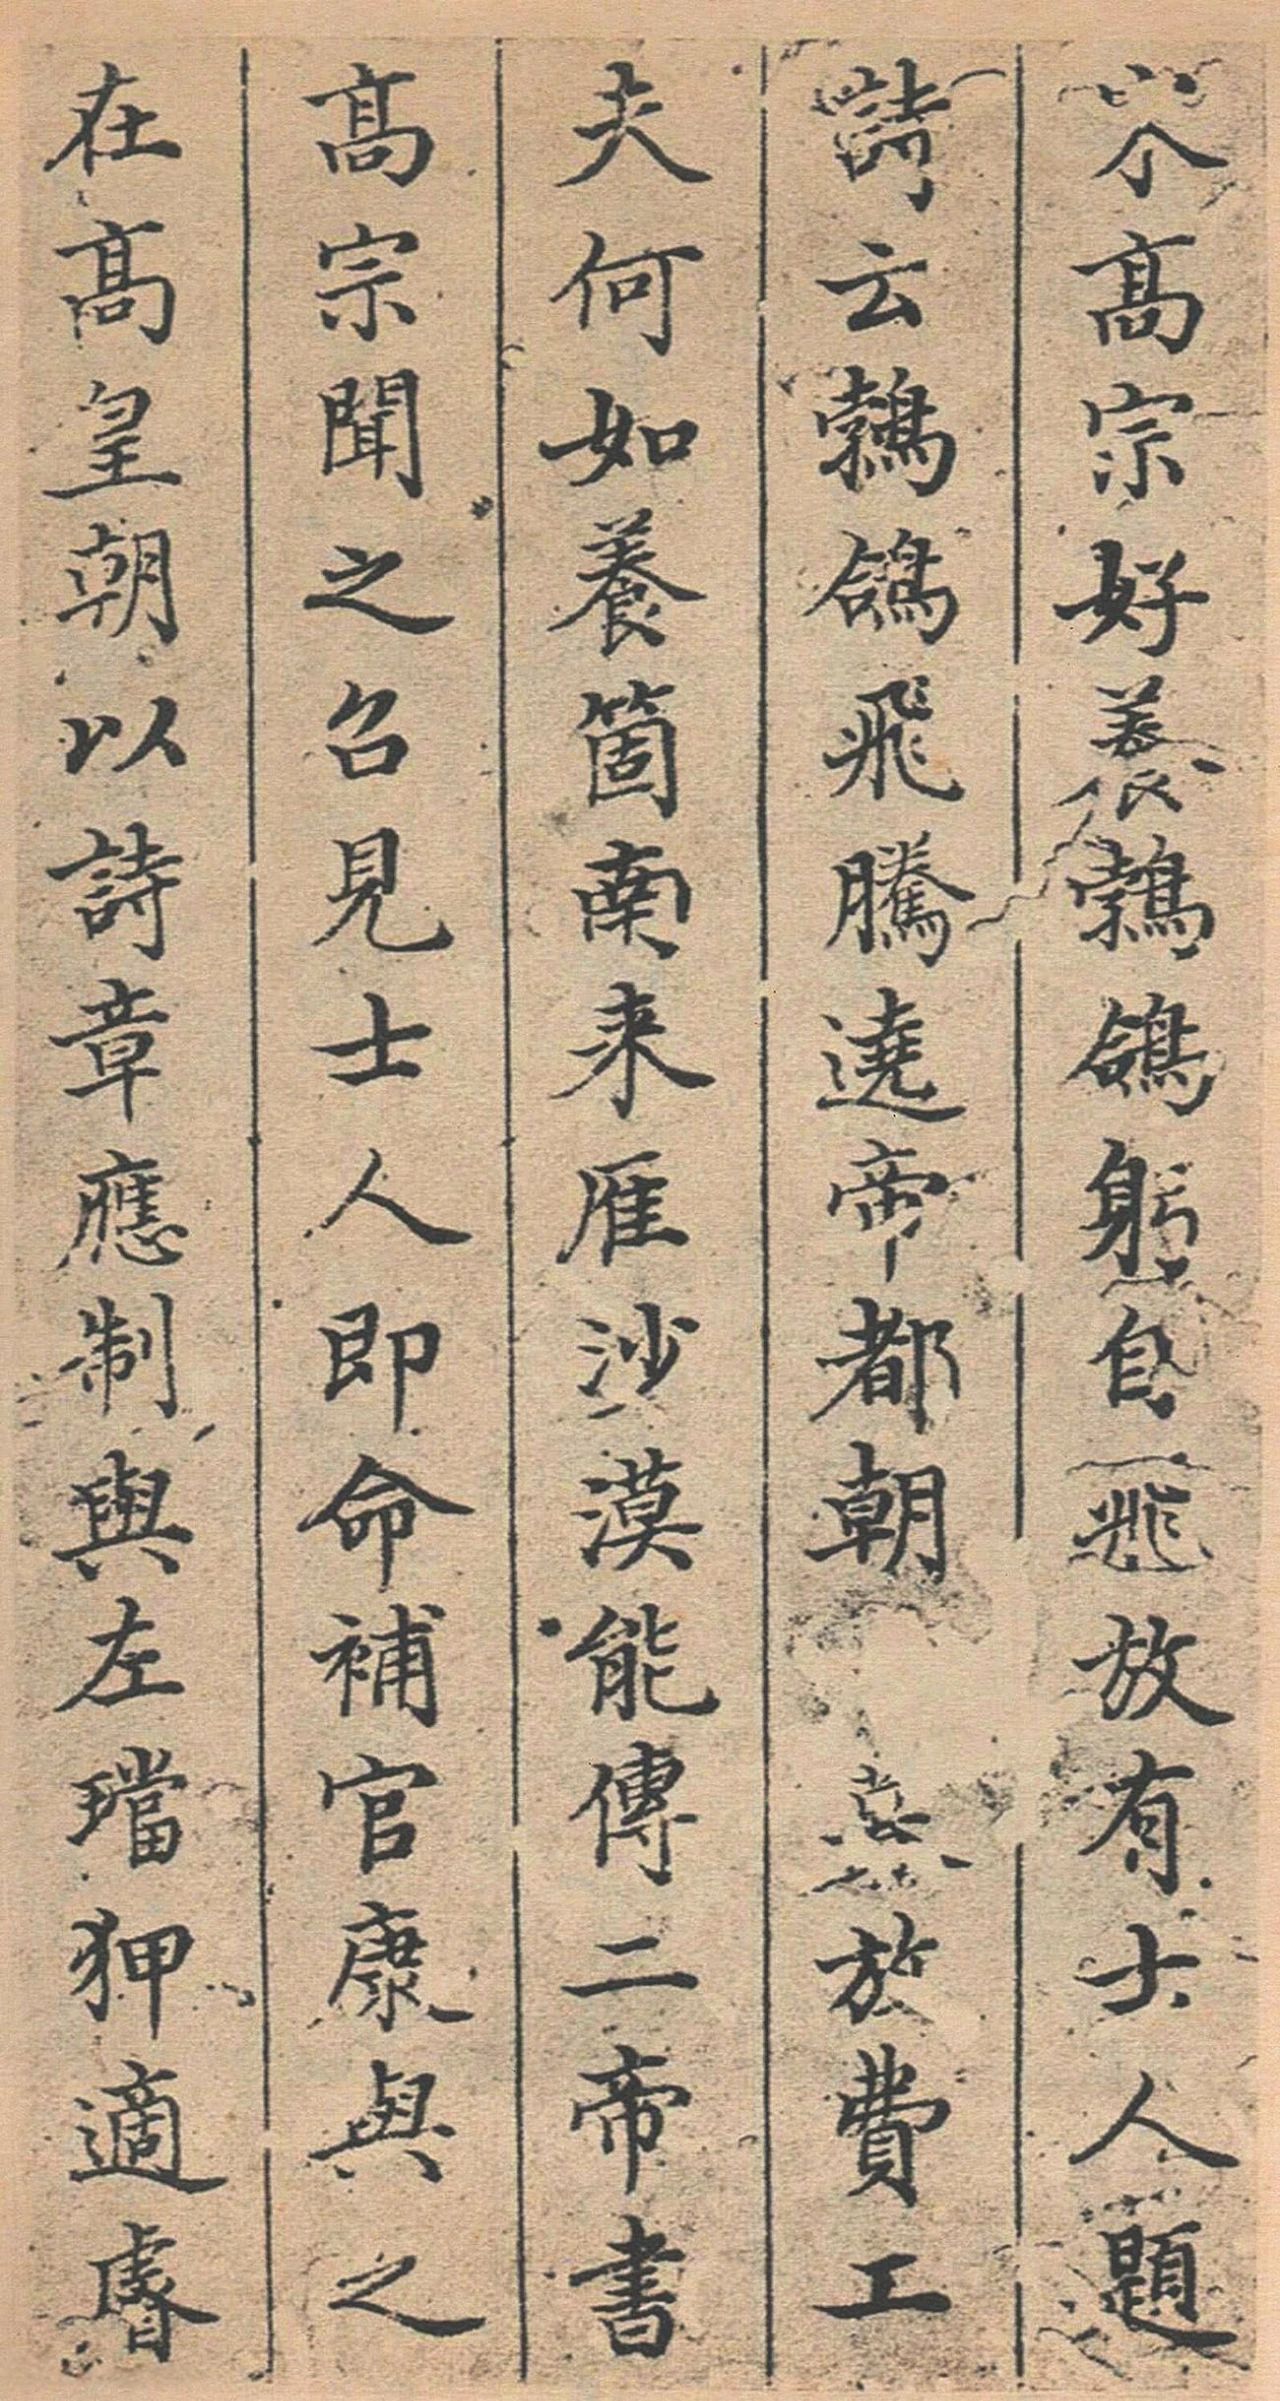 宋高宗好養鵓鴿躬自放有士人題
詩云鵓鴿飛騰遶帝都朝暮放費工
夫何如養箇南来雁沙漠能傳二帝書
高宗聞之召見士人即命補官康與之
在高皇朝以詩章應制與左璫狎適睿